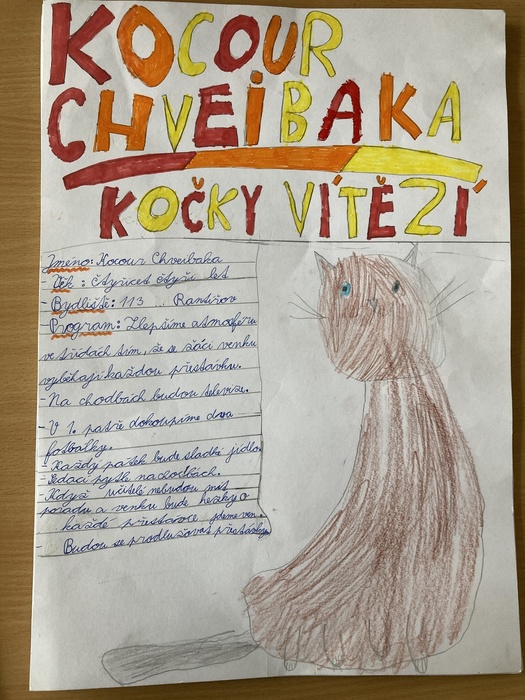 KOCOUR
CHVEIBAKA
KOČKY VÍTĚZÍ
Jméno: Kocour Chveibaka
- Věk : čtyřicet čtyři let
- Bydliště: 113 .. Rantířov
- Program: Zlepšíme atmosféru
ve třídách tím, že se žáci venku
vyběhají každou přestávku.
- Na chodbách budou televize.
- V 1. patře dokoupíme dva
fotbalky.
- Každý pátek bude sladké jídlo.
- Sedací pytle na chodbách.
- Když učitelé nebudou mít
poradu a venku bude hezky o
každé přestávce jdeme ven.
- Budou se prodlužovat přestávky.